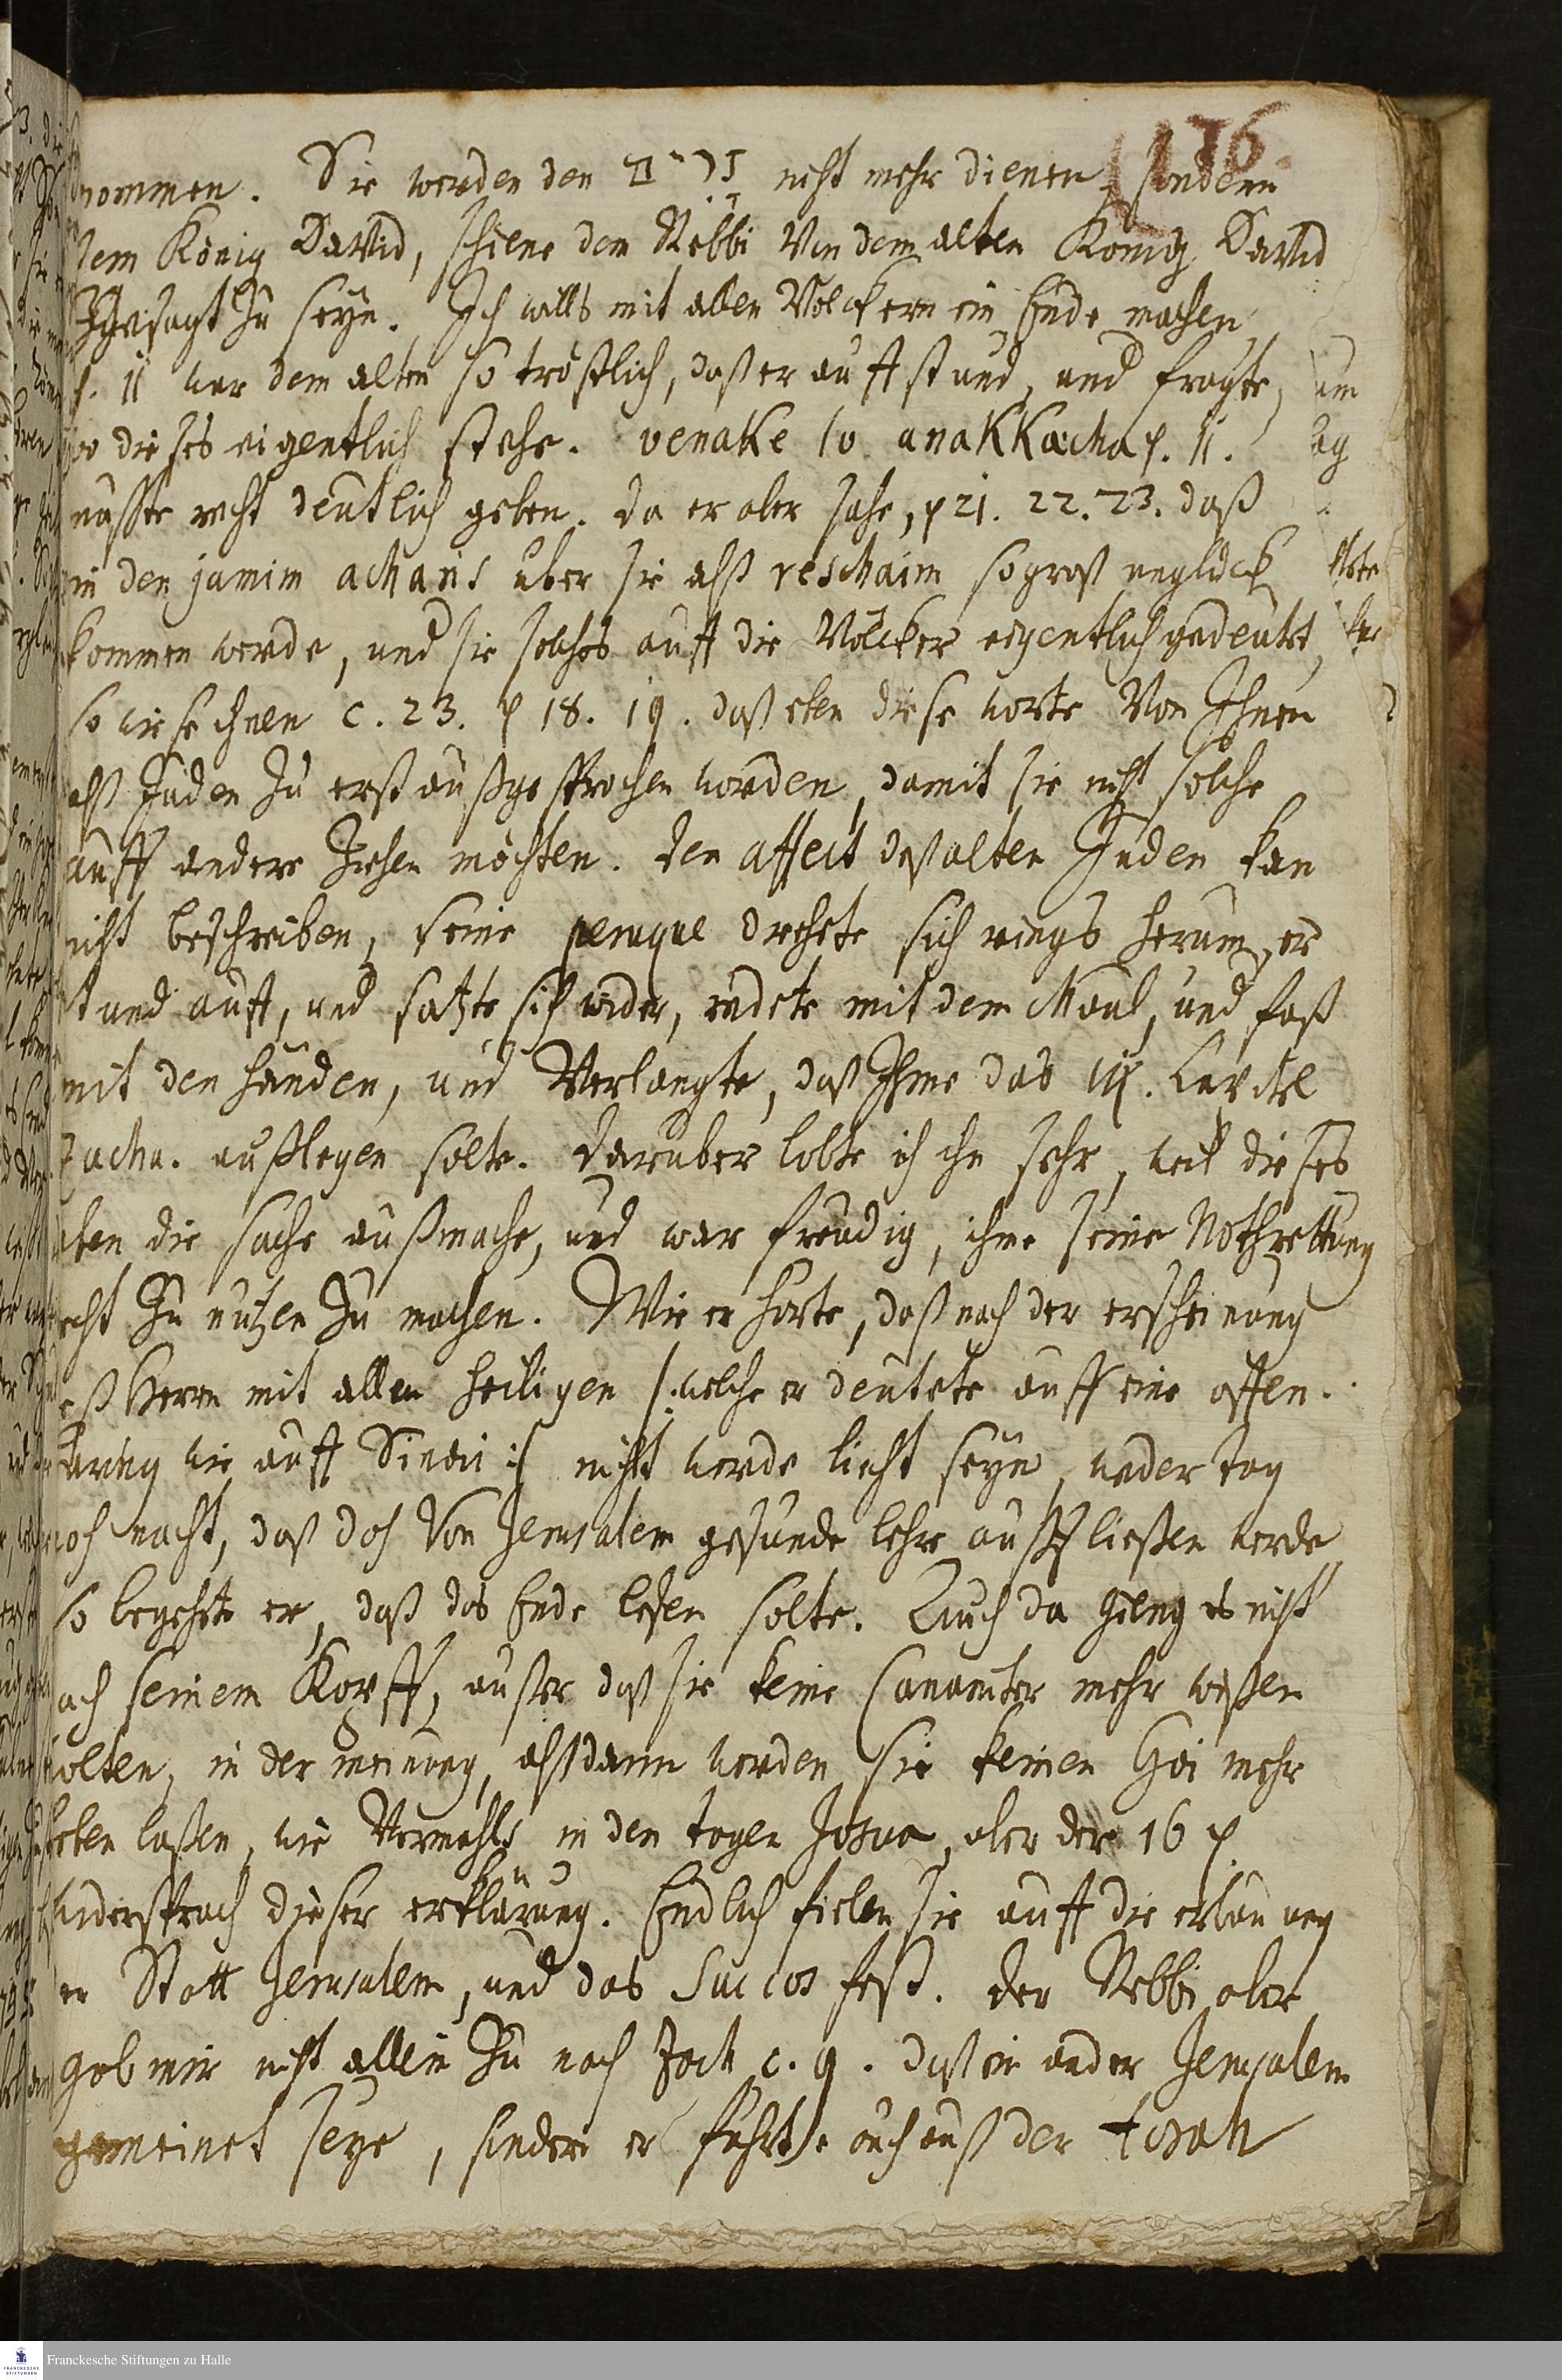 176.
nommen. Sie werden den זרים nicht mehr dienen, sondern
dem König David, schiene dem Rebbi Von dem alten König David
gesagt zu seyn. Ich wills mit allen Völckern ein Ende machen
. 11 war dem alten so tröstlich, daß er auffstund, und fragte,
wo dieses eigentlich stehe. venake lo anakkæcha . 11.
muste recht deutlich geben. Da er aber sahe, 21. 22. 23. daß
in den jamim acharis über sie alß reschaim so groß unglück
kommen werde, und sie solches auff die Völcker eigentlich gedeutet,
so wiese ihnen c. 23. 18. 19. daß eben diese worte Von Ihnen
alß Juden zu erst außgesprochen worden, damit sie nicht solche
auff andere ziehen möchten. Den affect deß alten Juden kan
nicht beschreiben, seine peruque drehete sich rings herum, er
stund auff, und satzte sich wider, redete mit dem Maul, und fast
mit den händen, und Verlangte, daß Ihme das Capitel
Zacha. außlegen solte. Darüber lobte ich ihn sehr, weil dieses
eben die sache außmache, und war freudig, ihme seine Nothrettung
recht zu nutzen zu machen. Wie er hörte, daß nach der erscheinung
deß Herrn mit allen heiligen /: welche er deutete auff eine offen-
barung wie auff Sinai :/ nicht werde liecht seyn, weder tag
noch nacht, daß doch Von Jerusalem gesunde lehre außfließen werde
so begehrte er, daß das Ende lesen solte. Auch da gieng es nicht
nach seinem Kopff, außer daß sie keine Cananiter mehr wißen
wolten, in der meinung, alßdann werden sie keinen Goi mehr
leben laßen, wie Vormahls in den tagen Josua, aber der 16
widersprach dieser erklärung. Endlich fielen sie auff die erbauung
der Statt Jerusalem, und das Succos fest. Der Rebbi aber
gab mir nicht allein zu nach Zach c. 9. daß ein ander Jerusalem
gemeinet seye, sondern er führte auch auß der torah
Franckesche Stiftungen zu Halle